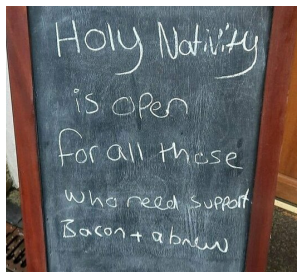 Holy Nativity
is open
for all those
who need support
Bacon + a brew